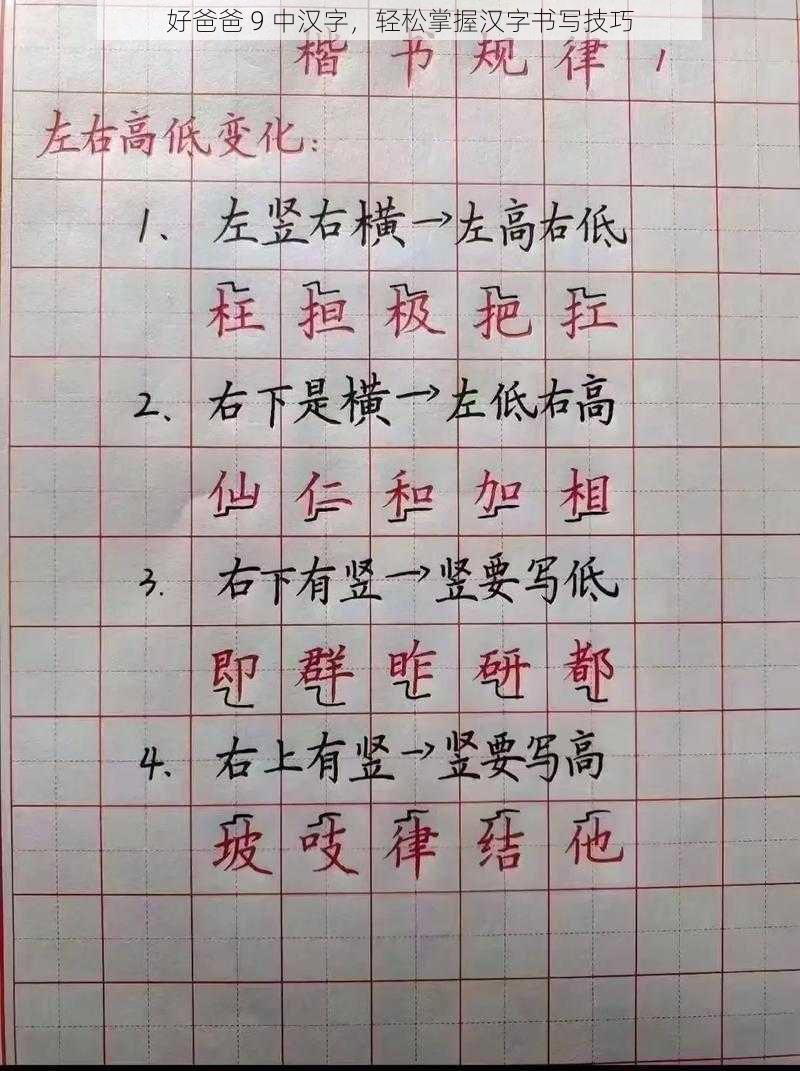 好爸爸 9 中汉字，轻松掌握汉字书写技巧
楷书规律1
左右高低变化：
1、左竖右横→左高右低
枉担极把扛
2、右下是横→左低右高
仙仁和加相
3.右下有竖→竖要写低
即群昨研都
4.右上有竖→竖要写高
坡吱律结他